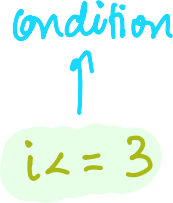 condition
i<= 3